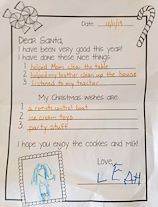 Date: 12/1/19
Dear Santa,
I have been very good this year!
I have done these nice things
1 helped Mom clear the table
2 helped my brother clean up the house
3 listened to my teacher
My Christmas wishes are
1 a remote control boat
2 ice cream toys
3 party stuff
I hope you enjoy the cookies and milk!
Love,
LEAH